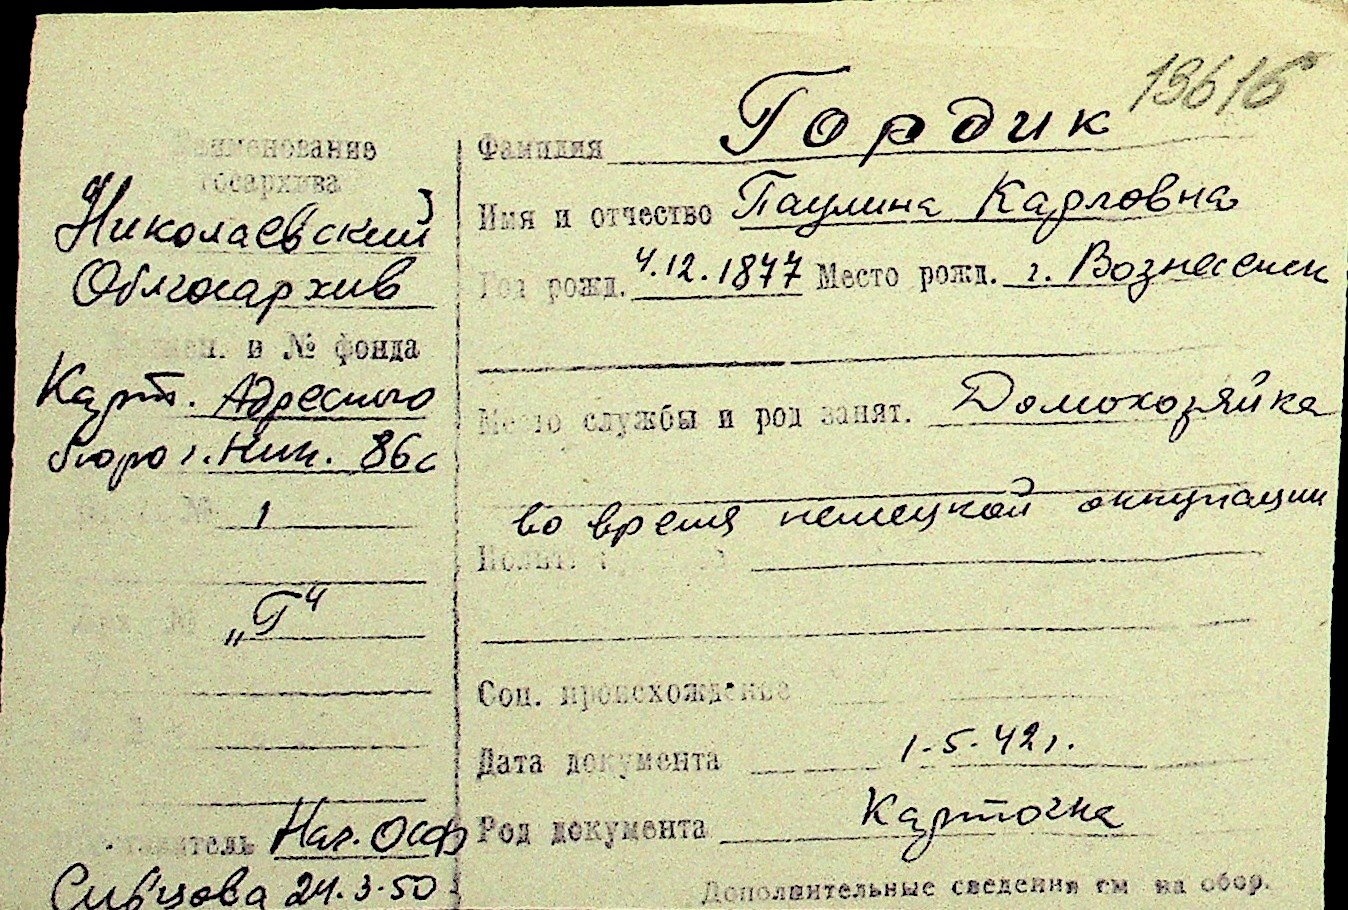 19616
Фамилия Гордик
Наименование
госархива
Николаевский
Облгосархив
Имя и отчество Паулина Карловна
Год рожд. 4.12.1877 Место рожд. г. Вознесенск
и № фонда
Карт. Адресного
бюро г. Ник. 86с
Место службы и род занят. Домохозяйка
во время немецкой оккупации
№ 1
№ „Г“
Соц. происхождение
Дата документа 1-5-42 г.
Род документа Карточка
Нач. ОСФ
Сивцова 24.3-50
Дополнительные сведения см на обор.